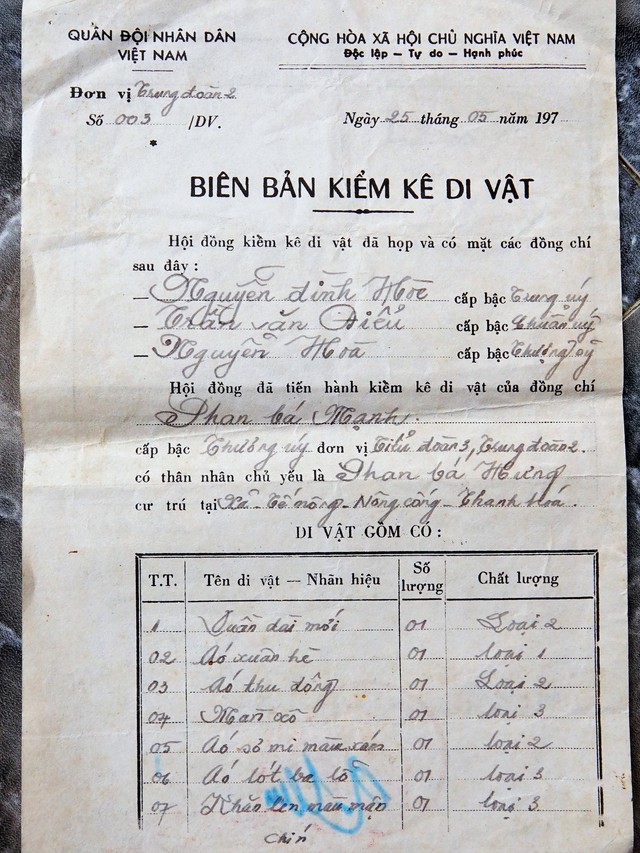 QUÂN ĐỘI NHÂN DÂN
VIỆT NAM
CỘNG HÒA XÃ HỘI CHỦ NGHĨA VIỆT NAM
Độc lập — Tự do — Hạnh phúc
Đơn vị Trung đoàn 2
Số 003 /DV.
Ngày 25 tháng 05 năm 197
*
BIÊN BẢN KIỂM KÊ DI VẬT
Hội đồng kiểm kê di vật đã họp và có mặt các đồng chí
sau đây :
— Nguyễn Đình Hoè cấp bậc Trung uý
— Trần văn Điểu cấp bậc Chuẩn uý
— Nguyễn Hoà cấp bậc Thượng sỹ
Hội đồng đã tiến hành kiểm kê di vật của đồng chí
Phan bá Mạnh.
cấp bậc Thượng uý đơn vị Tiểu đoàn 3, Trung đoàn 2.
có thân nhân chủ yếu là Phan bá Hưng
cư trú tại Xã - Tế nông - Nông cống - Thanh hoá.
DI VẬT GỒM CÓ :
T.T. Tên di vật — Nhãn hiệu Số lượng Chất lượng
1 Quần dài mới 01 Loại 2
02 Aó xuân hè 01 loại 1
03 Aó thu đông 01 Loại 2
04 Màn xô 01 loại 3
05 Aó sơ mi màu xám 01 loại 2
06 Aó lót ba lỗ 01 loại 3
07 Khăn len màu mận 01 loại 3
chín